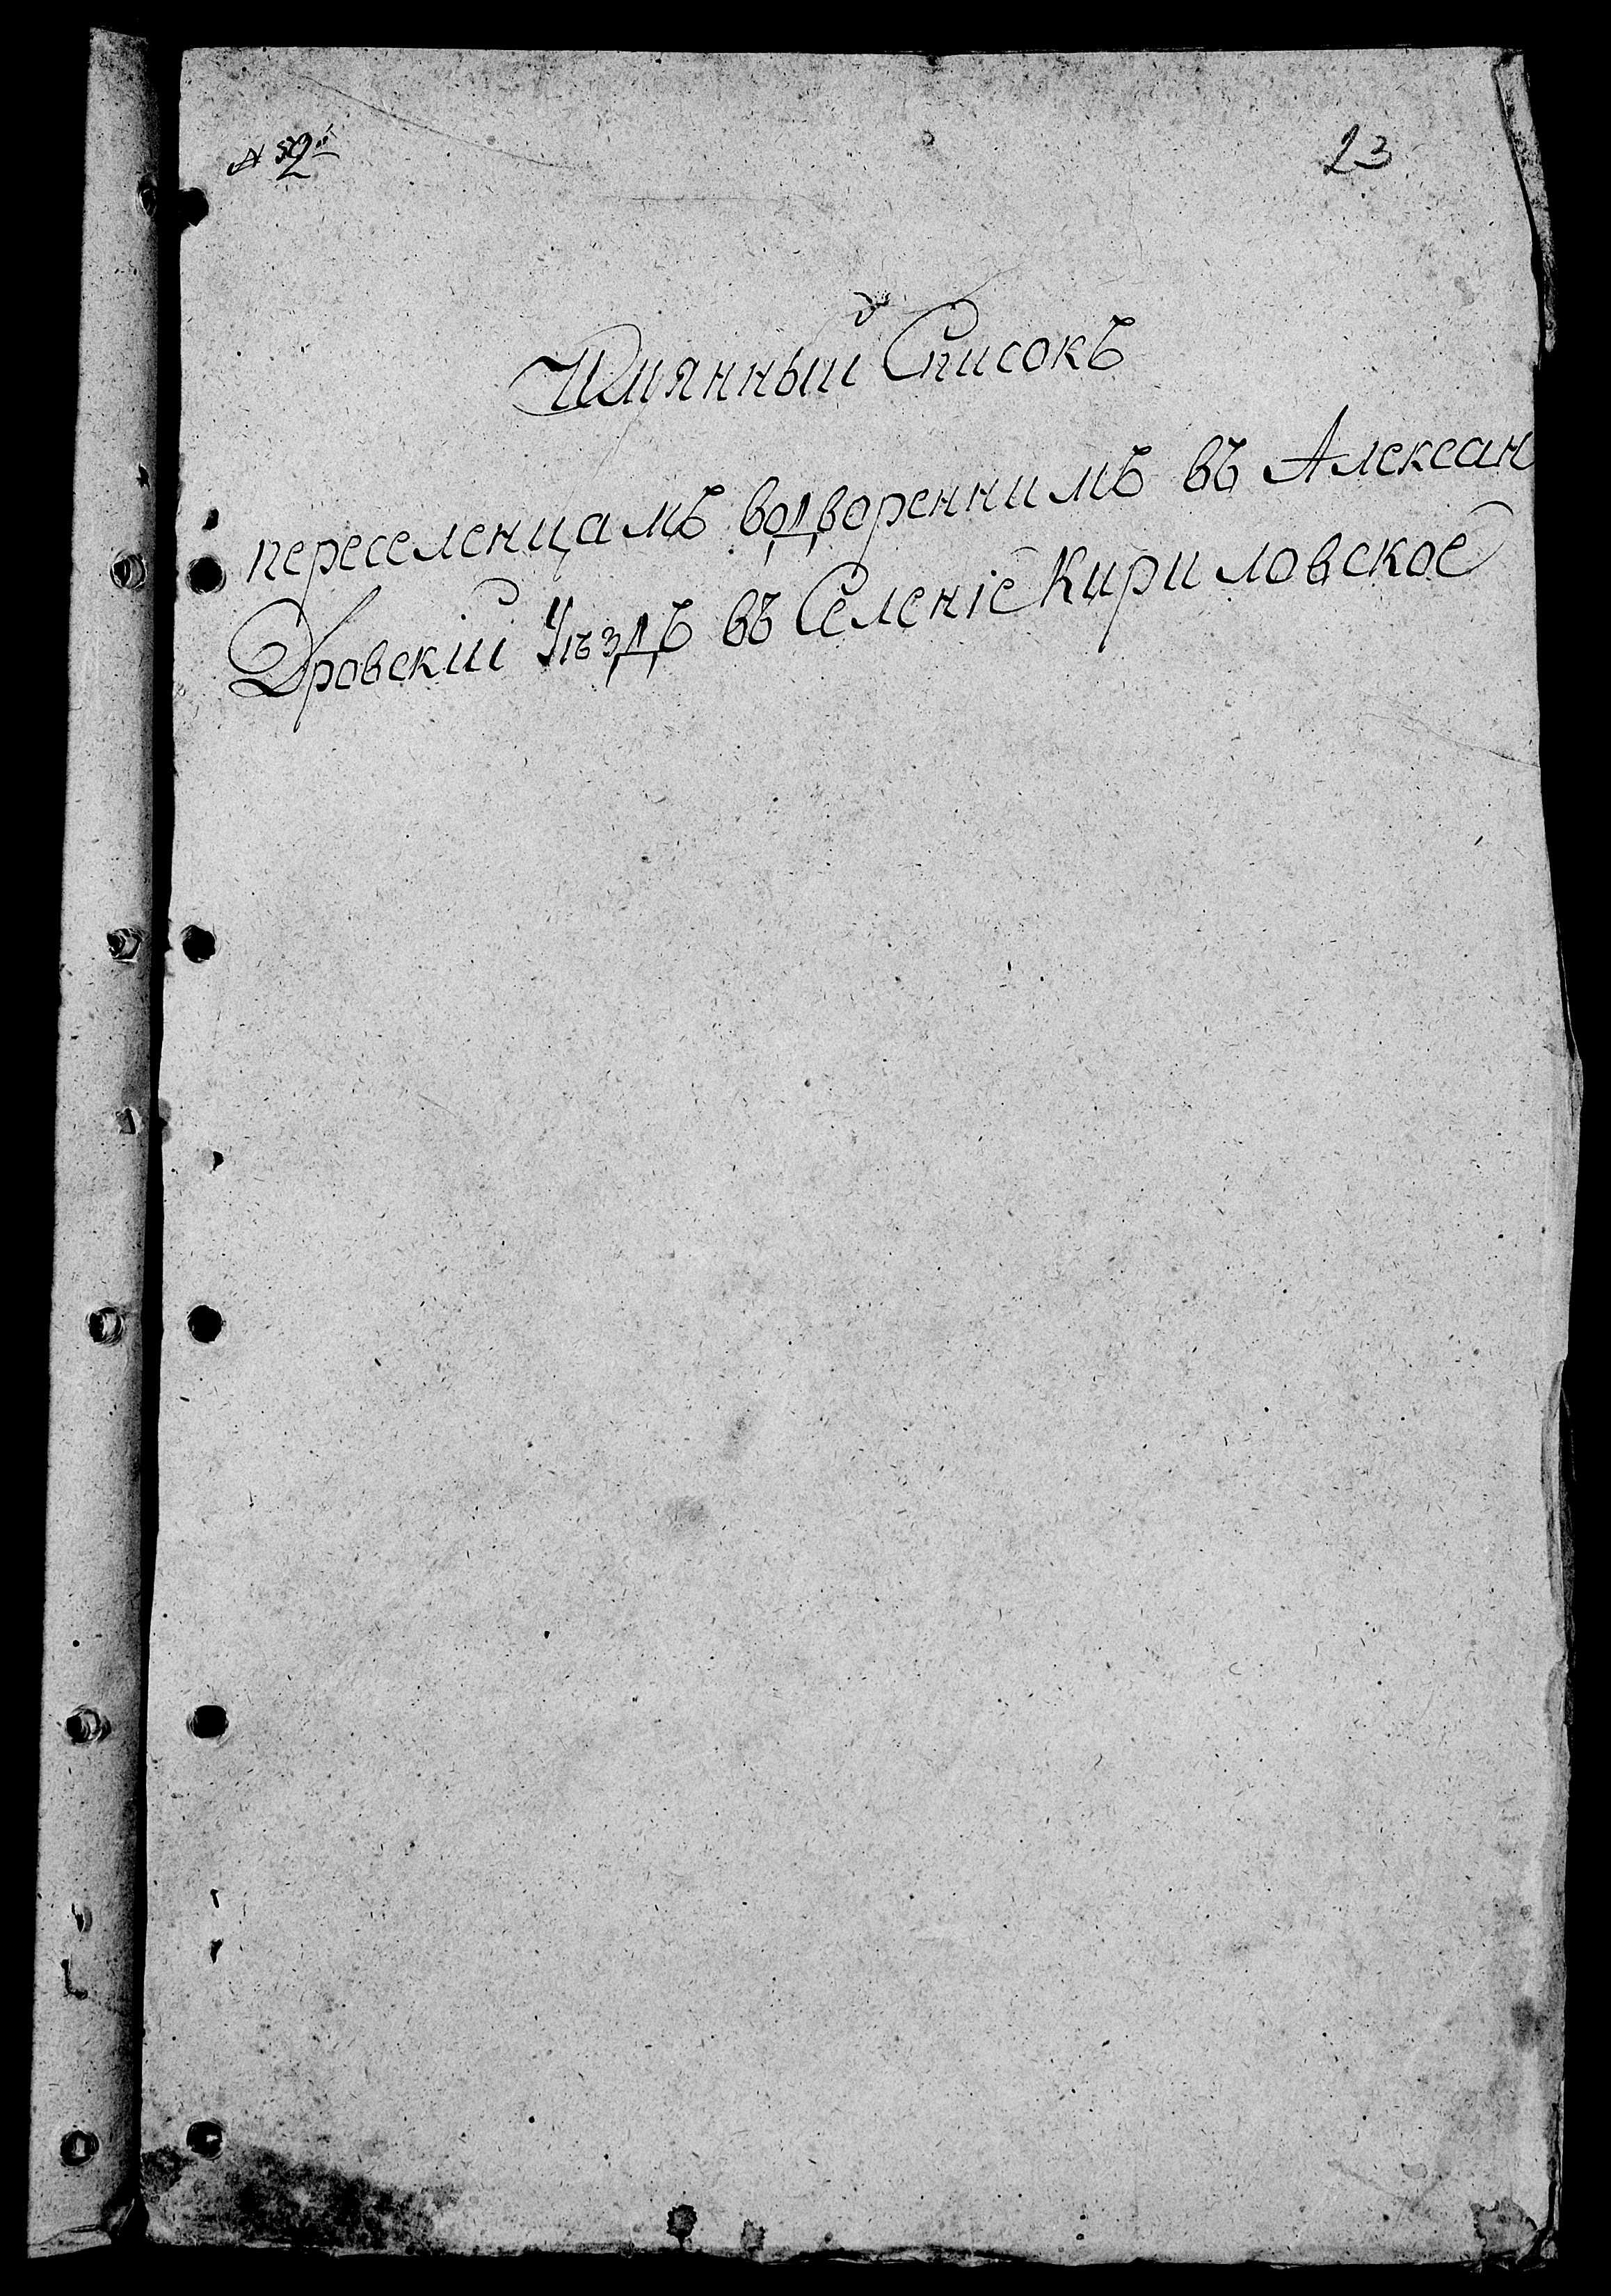 23
Имянный Списокъ
переселенцамъ водвореннимъ въ Алексан
Дровскій Уѣздъ въ Селеніе Кириловское